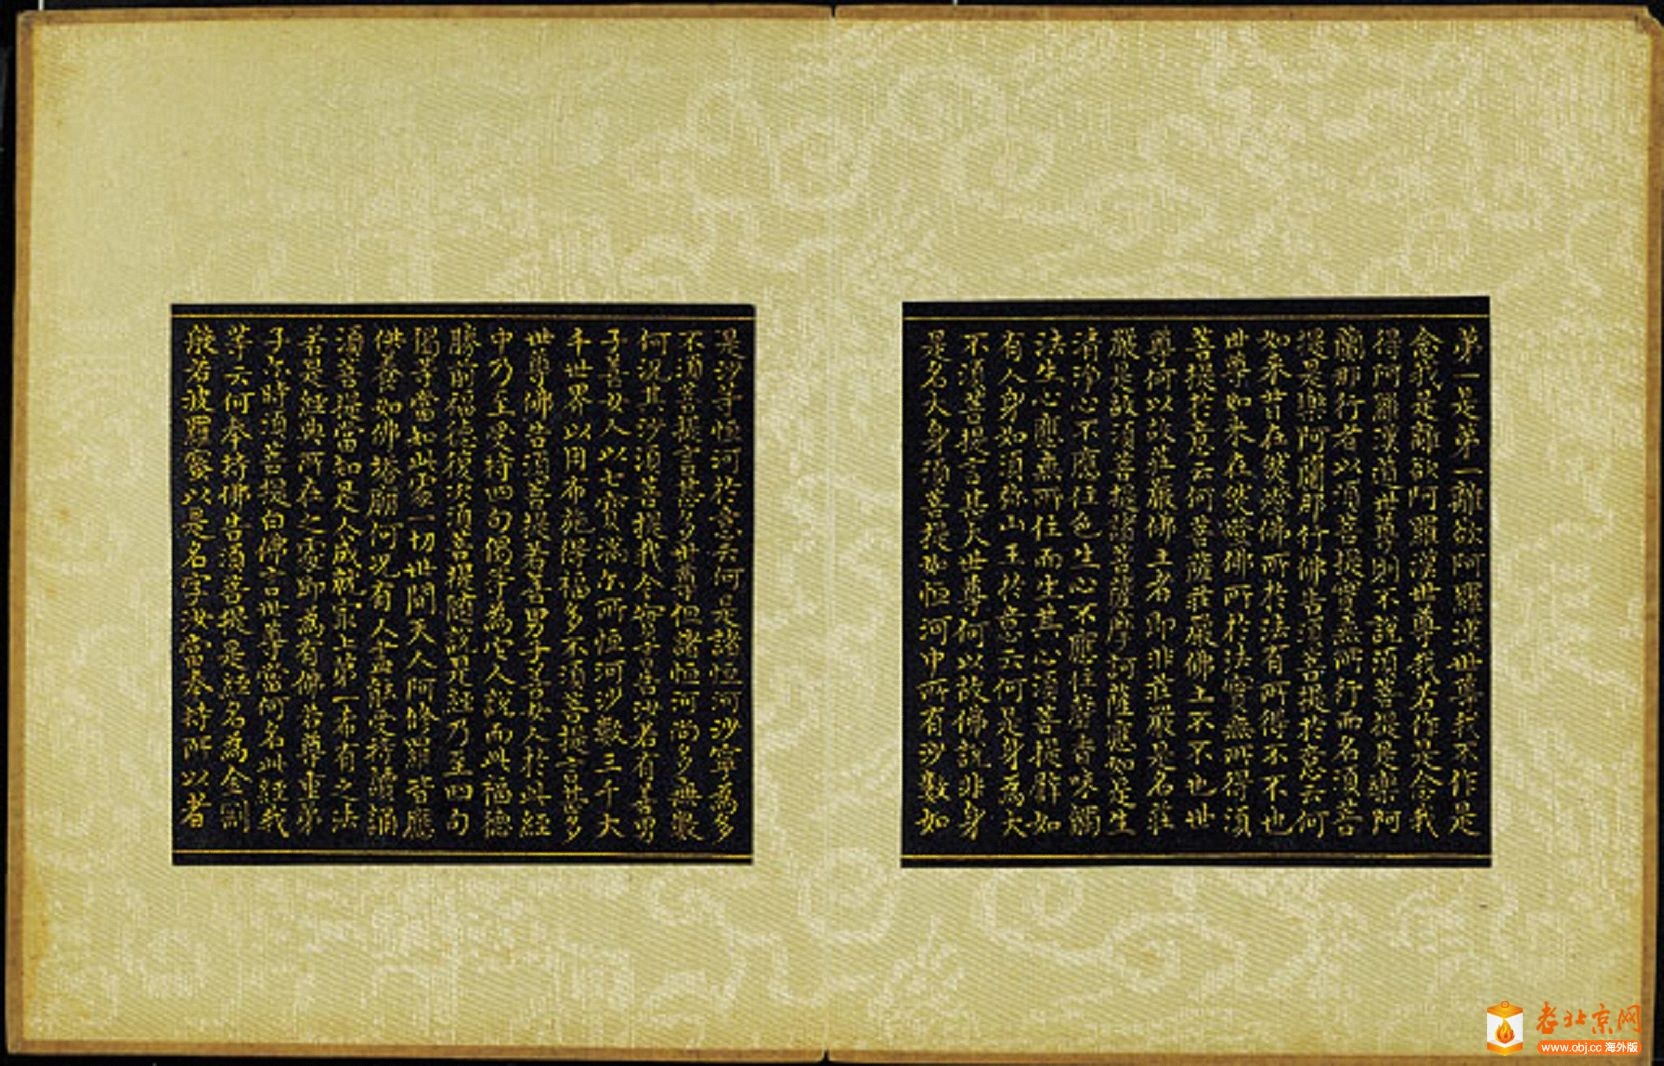 弟一是弟一離欲阿羅漢世尊我不作是
念我是離欲阿羅漢世尊我若作是念我
得阿羅漢道世尊則不說須菩提是樂阿
蘭那行者以須菩提實無所行而名須菩
提是樂阿蘭那行佛告須菩提於意云何
如来昔在然燈佛所於法有所得不不也
世尊如来在然燈佛所於法實無所得須
菩提於意云何菩薩莊嚴佛土不不也世
尊何以故莊嚴佛土者即非莊嚴是名莊
嚴是故須菩提諸菩薩摩訶薩應如是生
清淨心不應住色生心不應住聲香味觸
法生心應無所住而生其心須菩提譬如
有人身如須弥山王於意云何是身為大
不須菩提言甚大世尊何以故佛說非身
是名大身須菩提如恒河中所有沙數如
是沙等恒河於意云何是諸恒河沙寧為多
不須菩提言甚多世尊但諸恒河尚多無數
何況其沙須菩提我今實言告汝若有善男
子善女人以七寶滿尒所恒河沙數三千大
千世界以用布施得福多不須菩提言甚多
世尊佛告須菩提若善男子善女人於此經
中乃至受持四句偈等為他人說而此福德
勝前福德復次須菩提隨說是經乃至四句
偈等當知此處一切世間天人阿修羅皆應
供養如佛塔廟何況有人盡能受持讀誦
須菩提當知是人成就最上第一希有之法
若是經典所在之處即為有佛若尊重弟
子尒時須菩提白佛言世尊當何名此經我
等云何奉持佛告須菩提是經名為金剛
般若波羅蜜以是名字汝當奉持所以者
老北京网
www.obj.cc 海外版